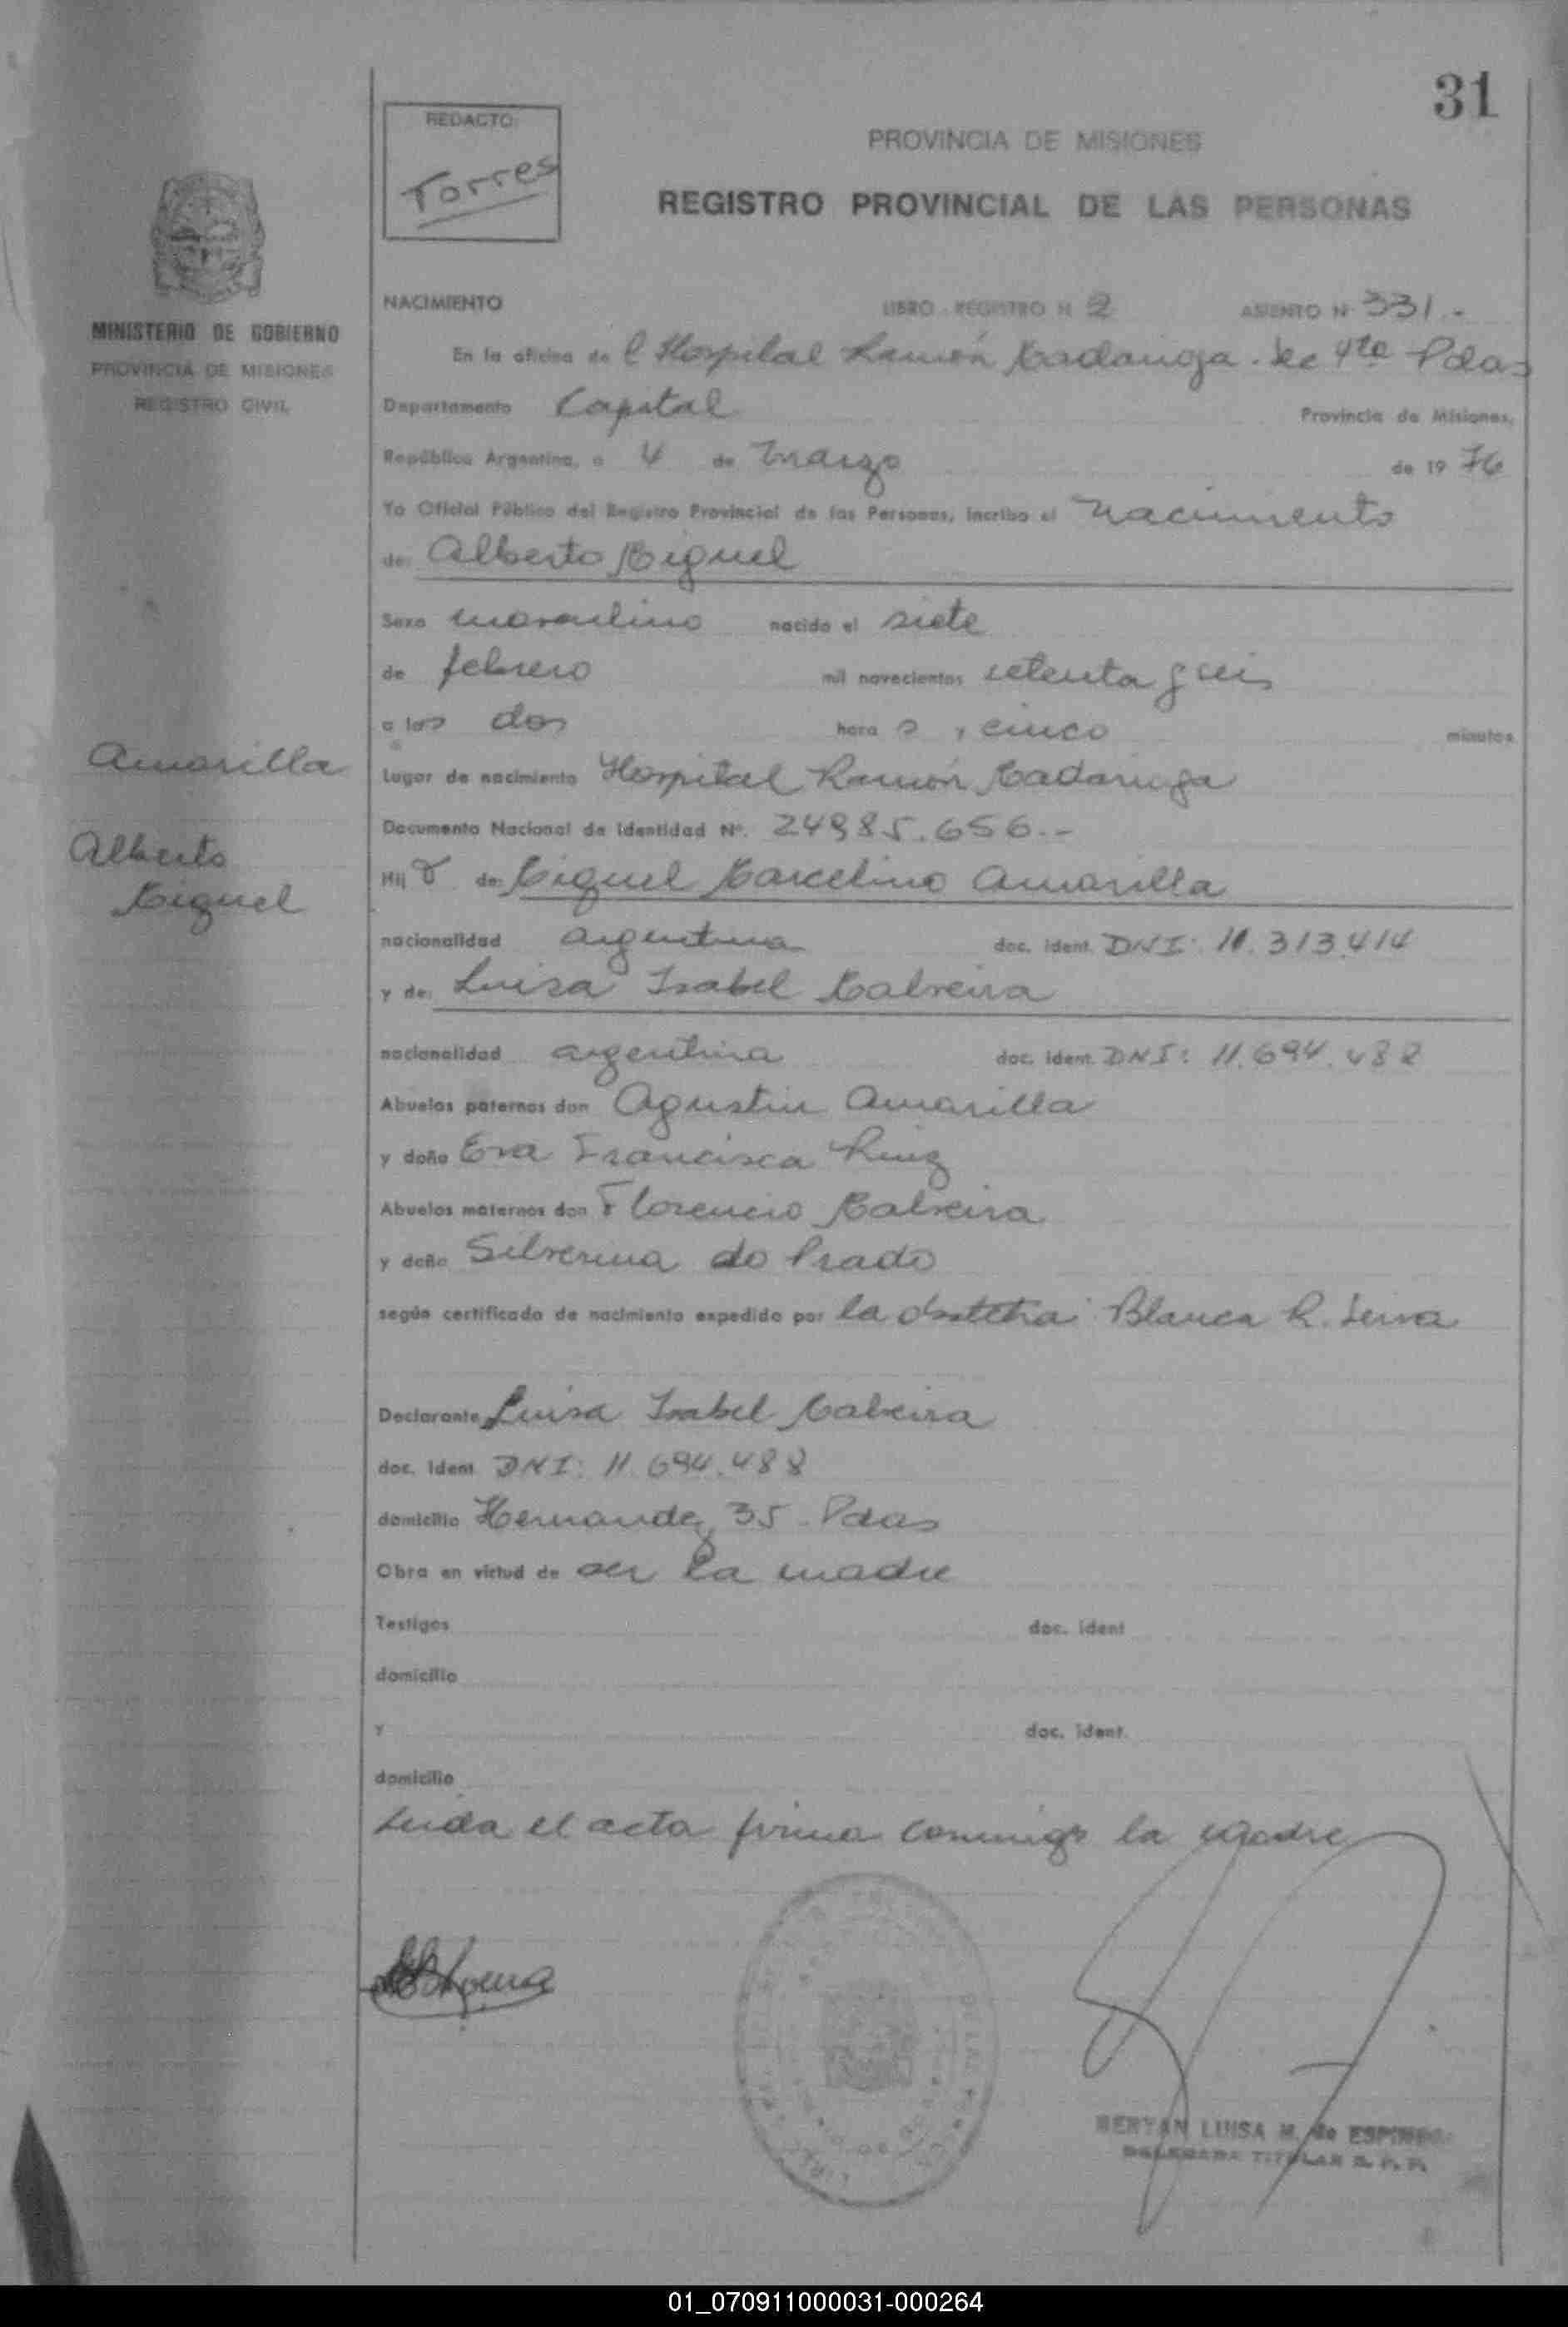 31
REDACTO:
Torres
PROVINCIA DE MISIONES
REGISTRO PROVINCIAL DE LAS PERSONAS
MINISTERIO DE GOBIERNO
PROVINCIA DE MISIONES
REGISTRO CIVIL
NACIMIENTO LIBRO REGISTRO N 2 ASIENTO N 331.-
En la oficina de l Hospital Ramón Madariaga. Sec 4ta Pdas
Departamento Capital Provincia de Misiones,
República Argentina, a 4 de Marzo de 1976
Yo Oficial Público del Registro Provincial de las Personas, incribo el Nacimiento
de: Alberto Miguel
Sexo masculino nacido el siete
de febrero mil novecientos setenta y seis
a las dos hora s , cinco minutos
Amarilla
Lugar de nacimiento Hospital Ramón Madariaga
Documento Nacional de Identidad Nº. 24985.656.-
Alberto
Miguel
Hij o de: Miguel Marcelino Amarilla
nacionalidad argentina doc. ident. DNI: 11.313.414
y de: Luisa Isabel Cabreira
nacionalidad argentina doc. ident. DNI: 11.694.488
Abuelos paternos don Agustin Amarilla
y doña Eva Francisca Ruiz
Abuelos maternos don Florencio Cabreira
y doña Silverina do Prado
según certificado de nacimiento expedido por la obstetra Blanca R. Leiva
Declarante Luisa Isabel Cabreira
doc. ident. DNI: 11.694.488
domicilio Hernandez 35 - Pdas
Obra en virtud de ser la madre
Testigos doc. ident
domicilio
y doc. ident.
domicilio
Leida el acta firma conmigo la madre
LUISA M. de
DELEGADA TITULAR R. P. P.
01_070911000031-000264